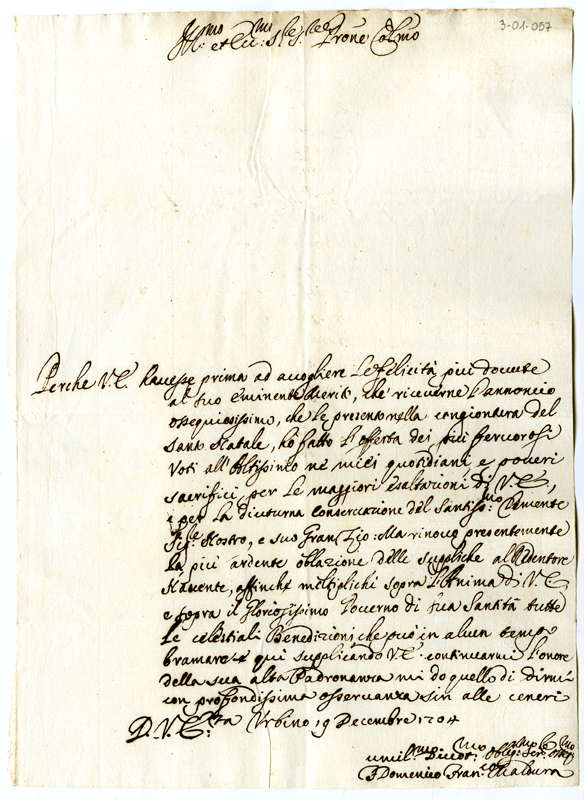 3-01-057
Ill.mo et Ecc.mo Sig.re Sig.re Prone Col.mo
Perche V.E. havesse prima ad accogliere le felicità più dovute
al suo eminente merito, che riceverne l'annoncio
ossequiosissimo, che le presento nella congiontura del
Santo Natale, ho fatto l'offerta dei più fervorosi
voti all'Altissimo ne miei quotidiani e poveri
sacrifici per le maggiori esaltazioni di V.E.,
e per la diuturna conservazione del Santiss.mo Clemente
Sig.re Nostro, e suo Gran Zio: Ma rinovo presentemente
la più ardente oblazione delle suppliche al Redentore
Nascente, affinché moltiplichi sopra l'Anima di V.E.
e sopra il Gloriosissimo Governo di sua Santità tutte
le celestiali Benedizioni, che può in alcun tempo
bramare e qui supplicando V.E. continuarmi l'onore
della sua alta Padronanza mi do quello di dirmi
con profondissima osservanza sin alle ceneri
D.V.E.za Urbino 19 Decembre 1704
umil.mo Divot.mo Oblig.mo Ser.
F. Domenico Fran.co